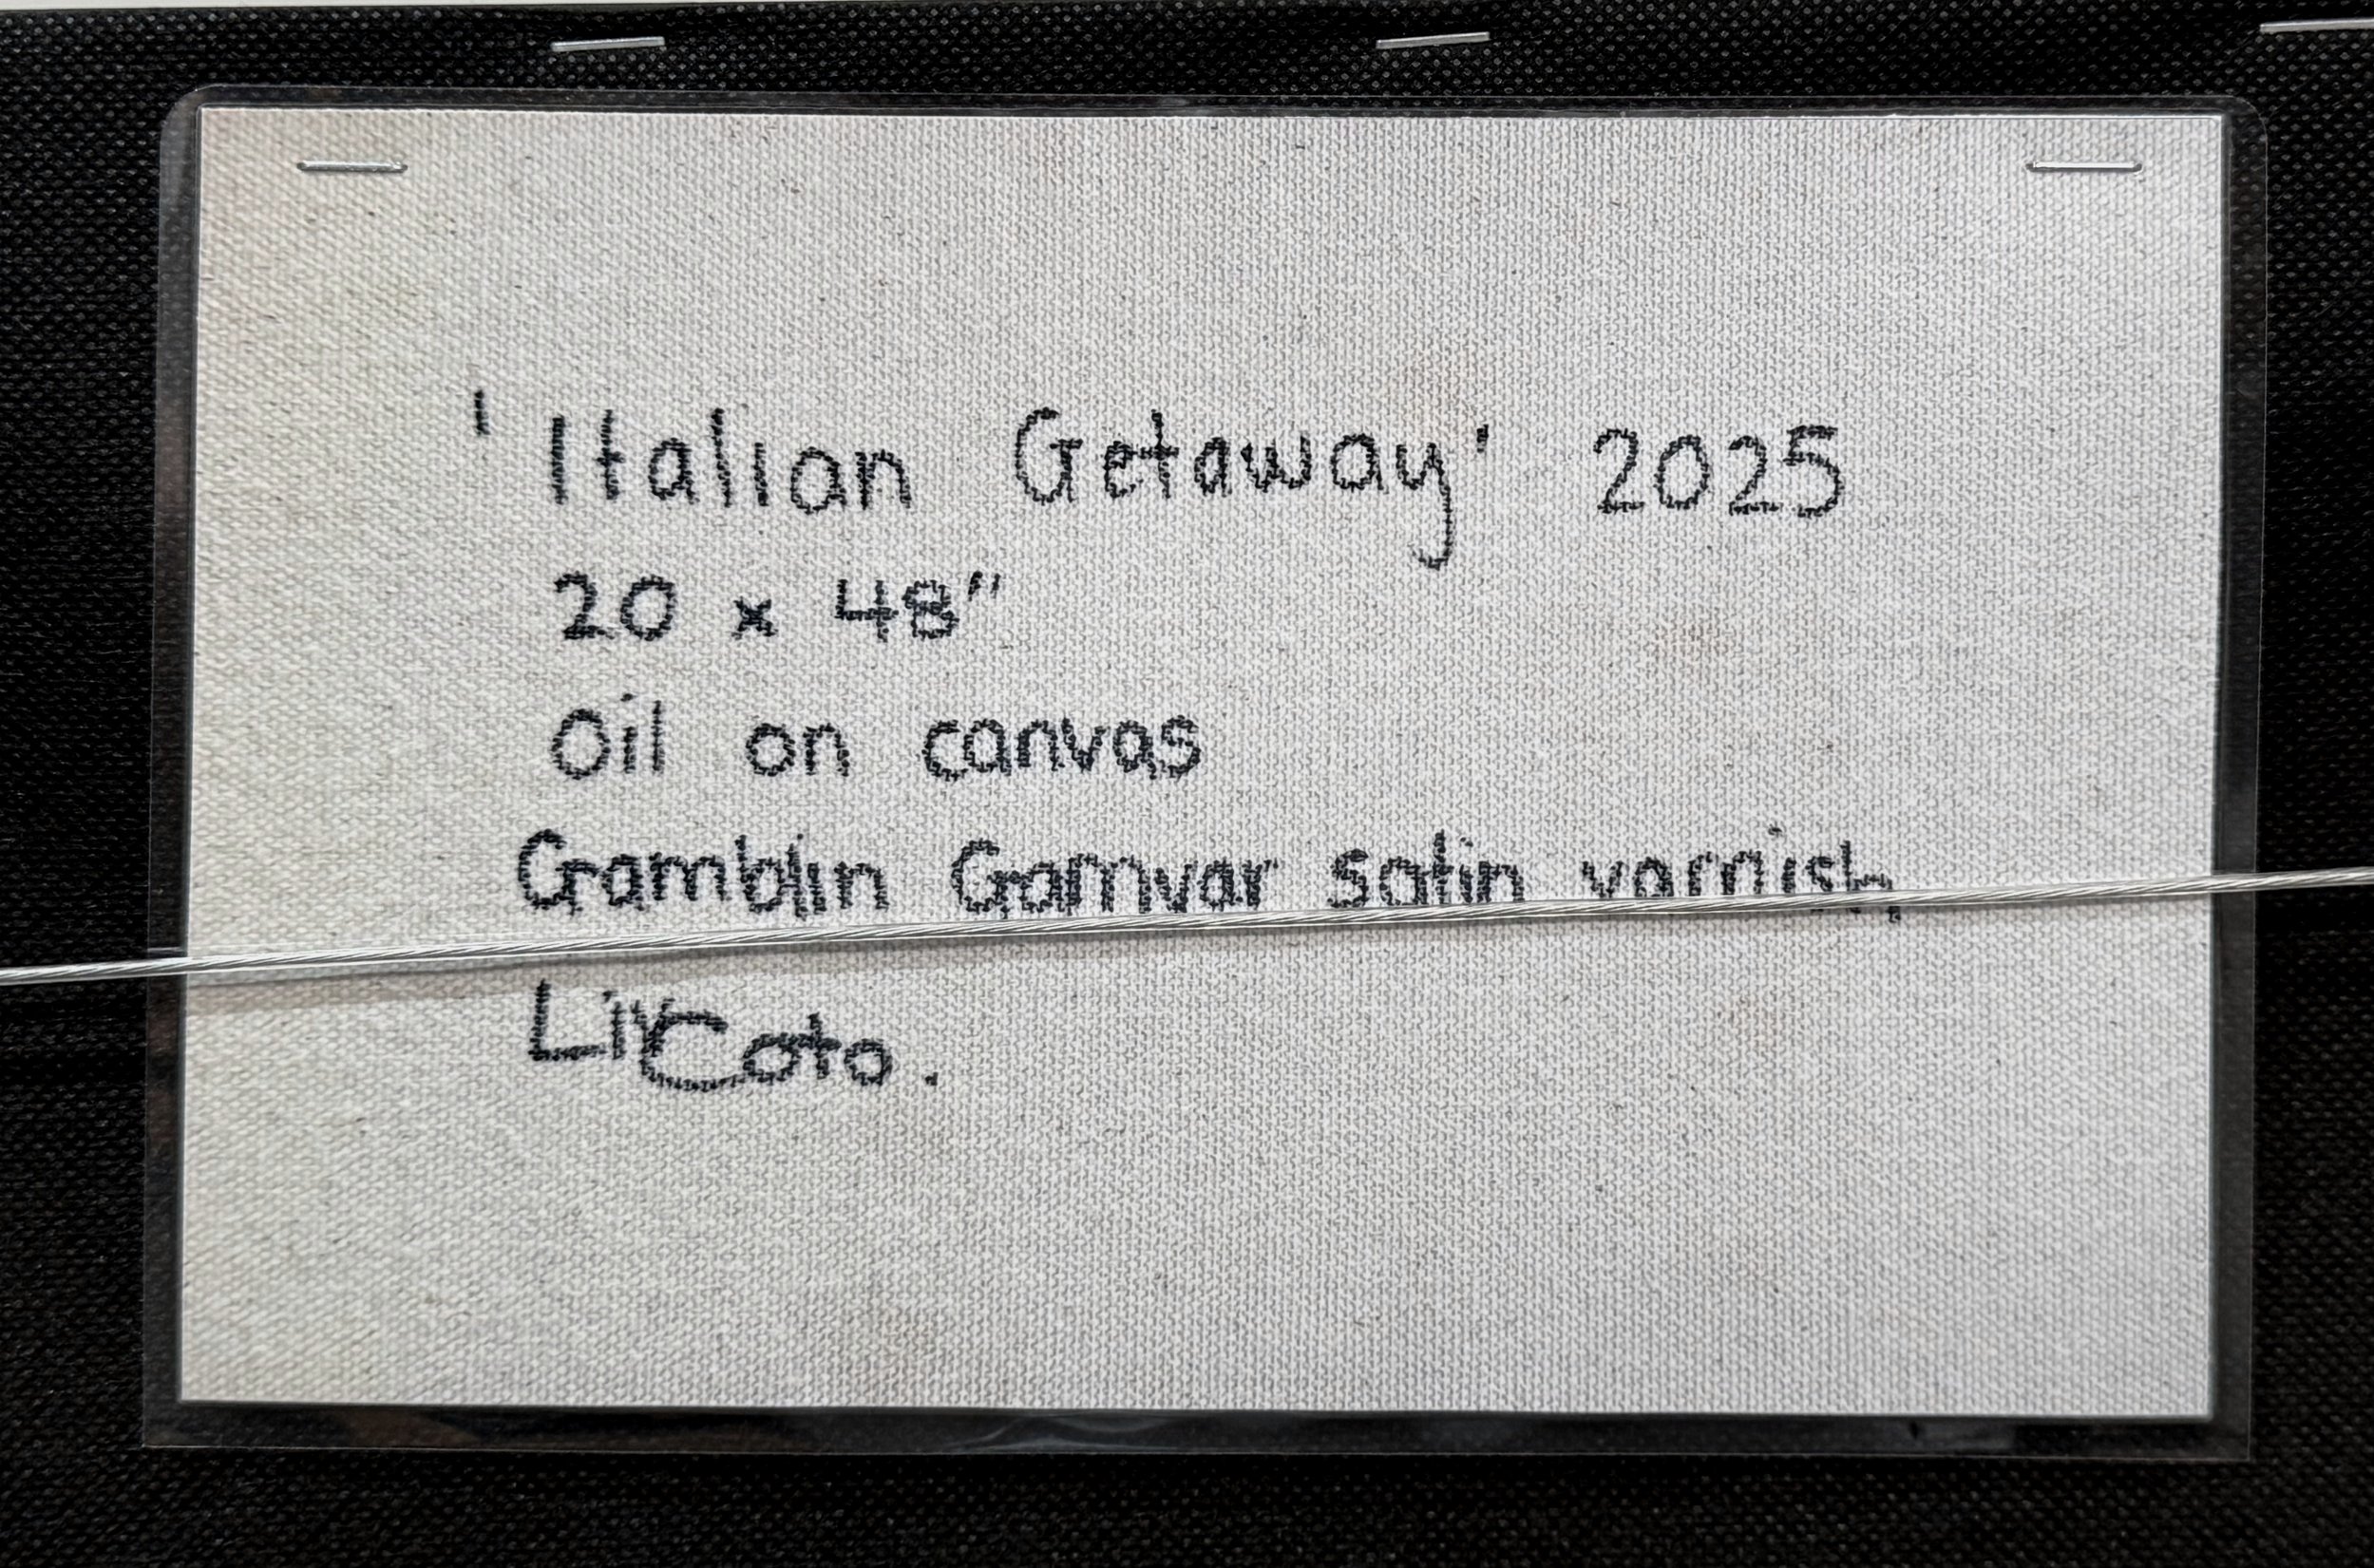 'Italian Getaway' 2025
20 x 48"
Oil on canvas
Gramblin Gamvar satin varnish
Liv Coto.